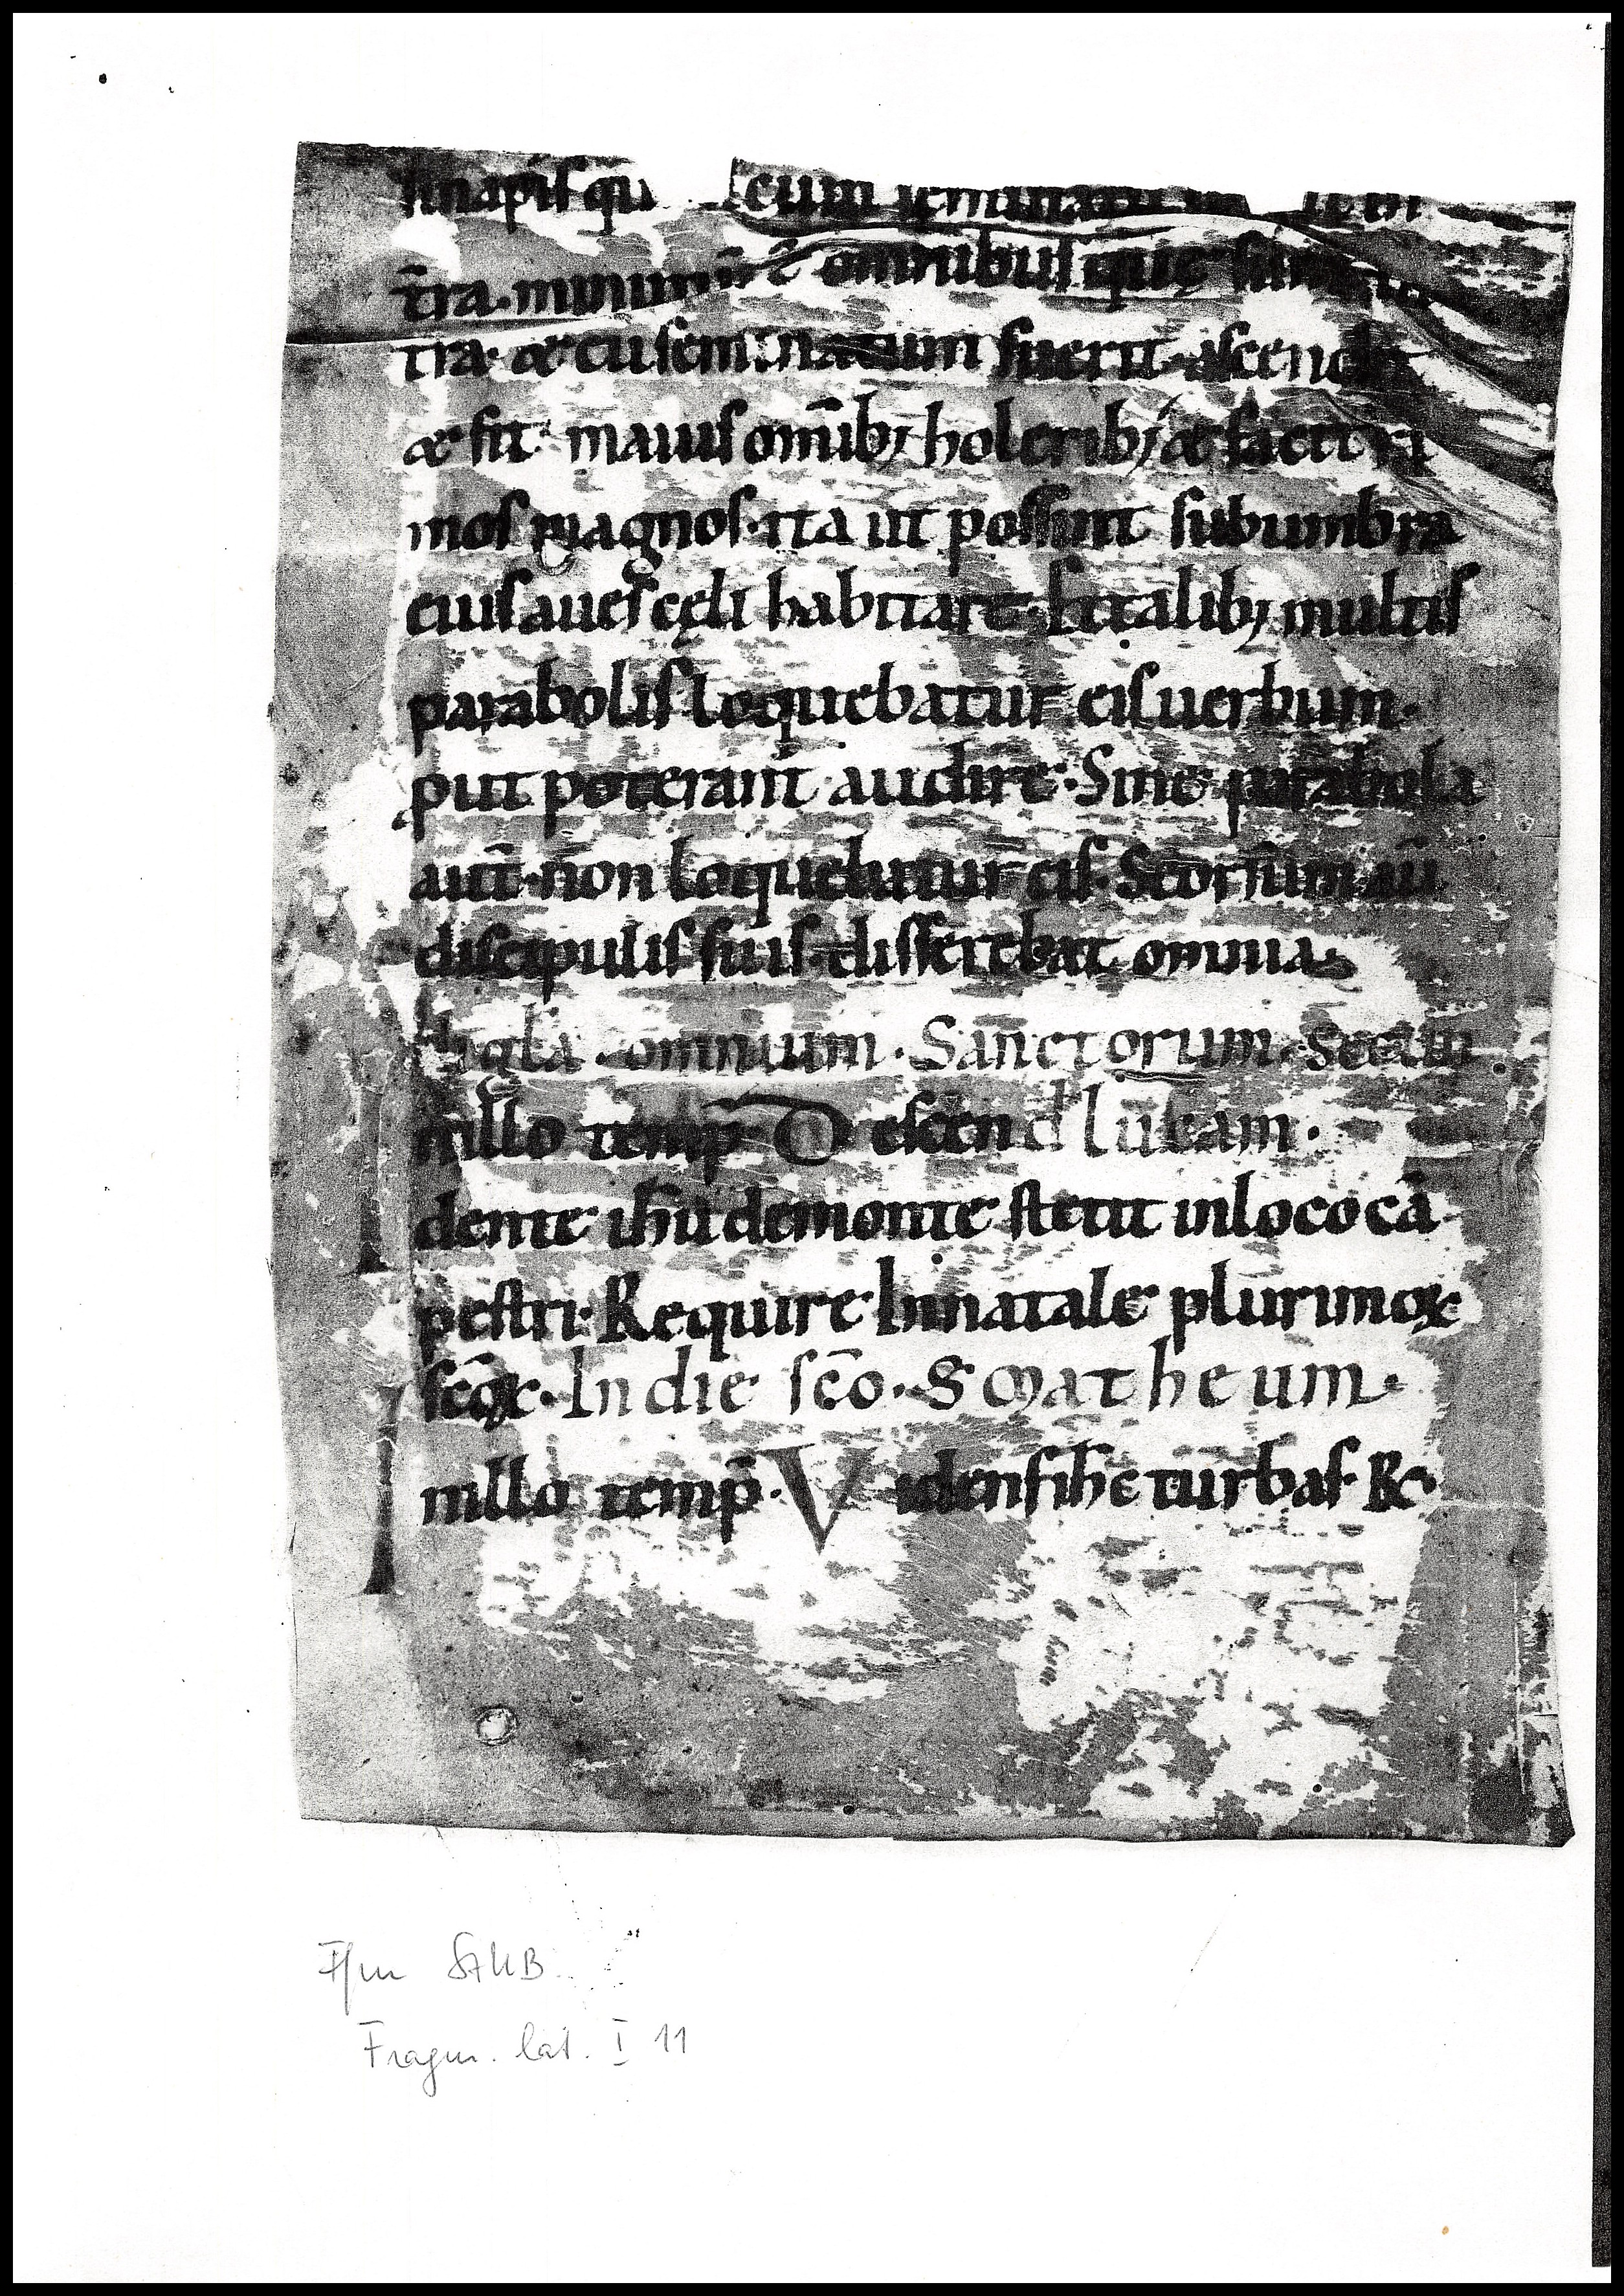 sinapis qu cum seminatu
t̄ra· minimū ē omnibus quę sunt in
tra· & cū seminatum fuerit· ascendit
& fit maius omīb; holerib; & facit ra
mos magnos· ita ut possint sub umbra
eius aues cęli habitare· Et talib; multis
parabolis loquebatur eis uerbum·
put poterant audire· Sine parabola
aut̄ non loquebatur eis· Seorsum aū
discipulis suis disserebat omnia·
Uigla· omnium· Sanctorum· Secun
Inillo temp̄ Descen d lucam·
dente ih̄u demonte stetit inloco cā
pestri· Require In natale plurimoꝝ
scōꝝ· In die sc̄o· S Matheum·
Inillo temp̄· Videns ih̄c turbas· Re·
Ffm StUB
Fragm. lat. I 11